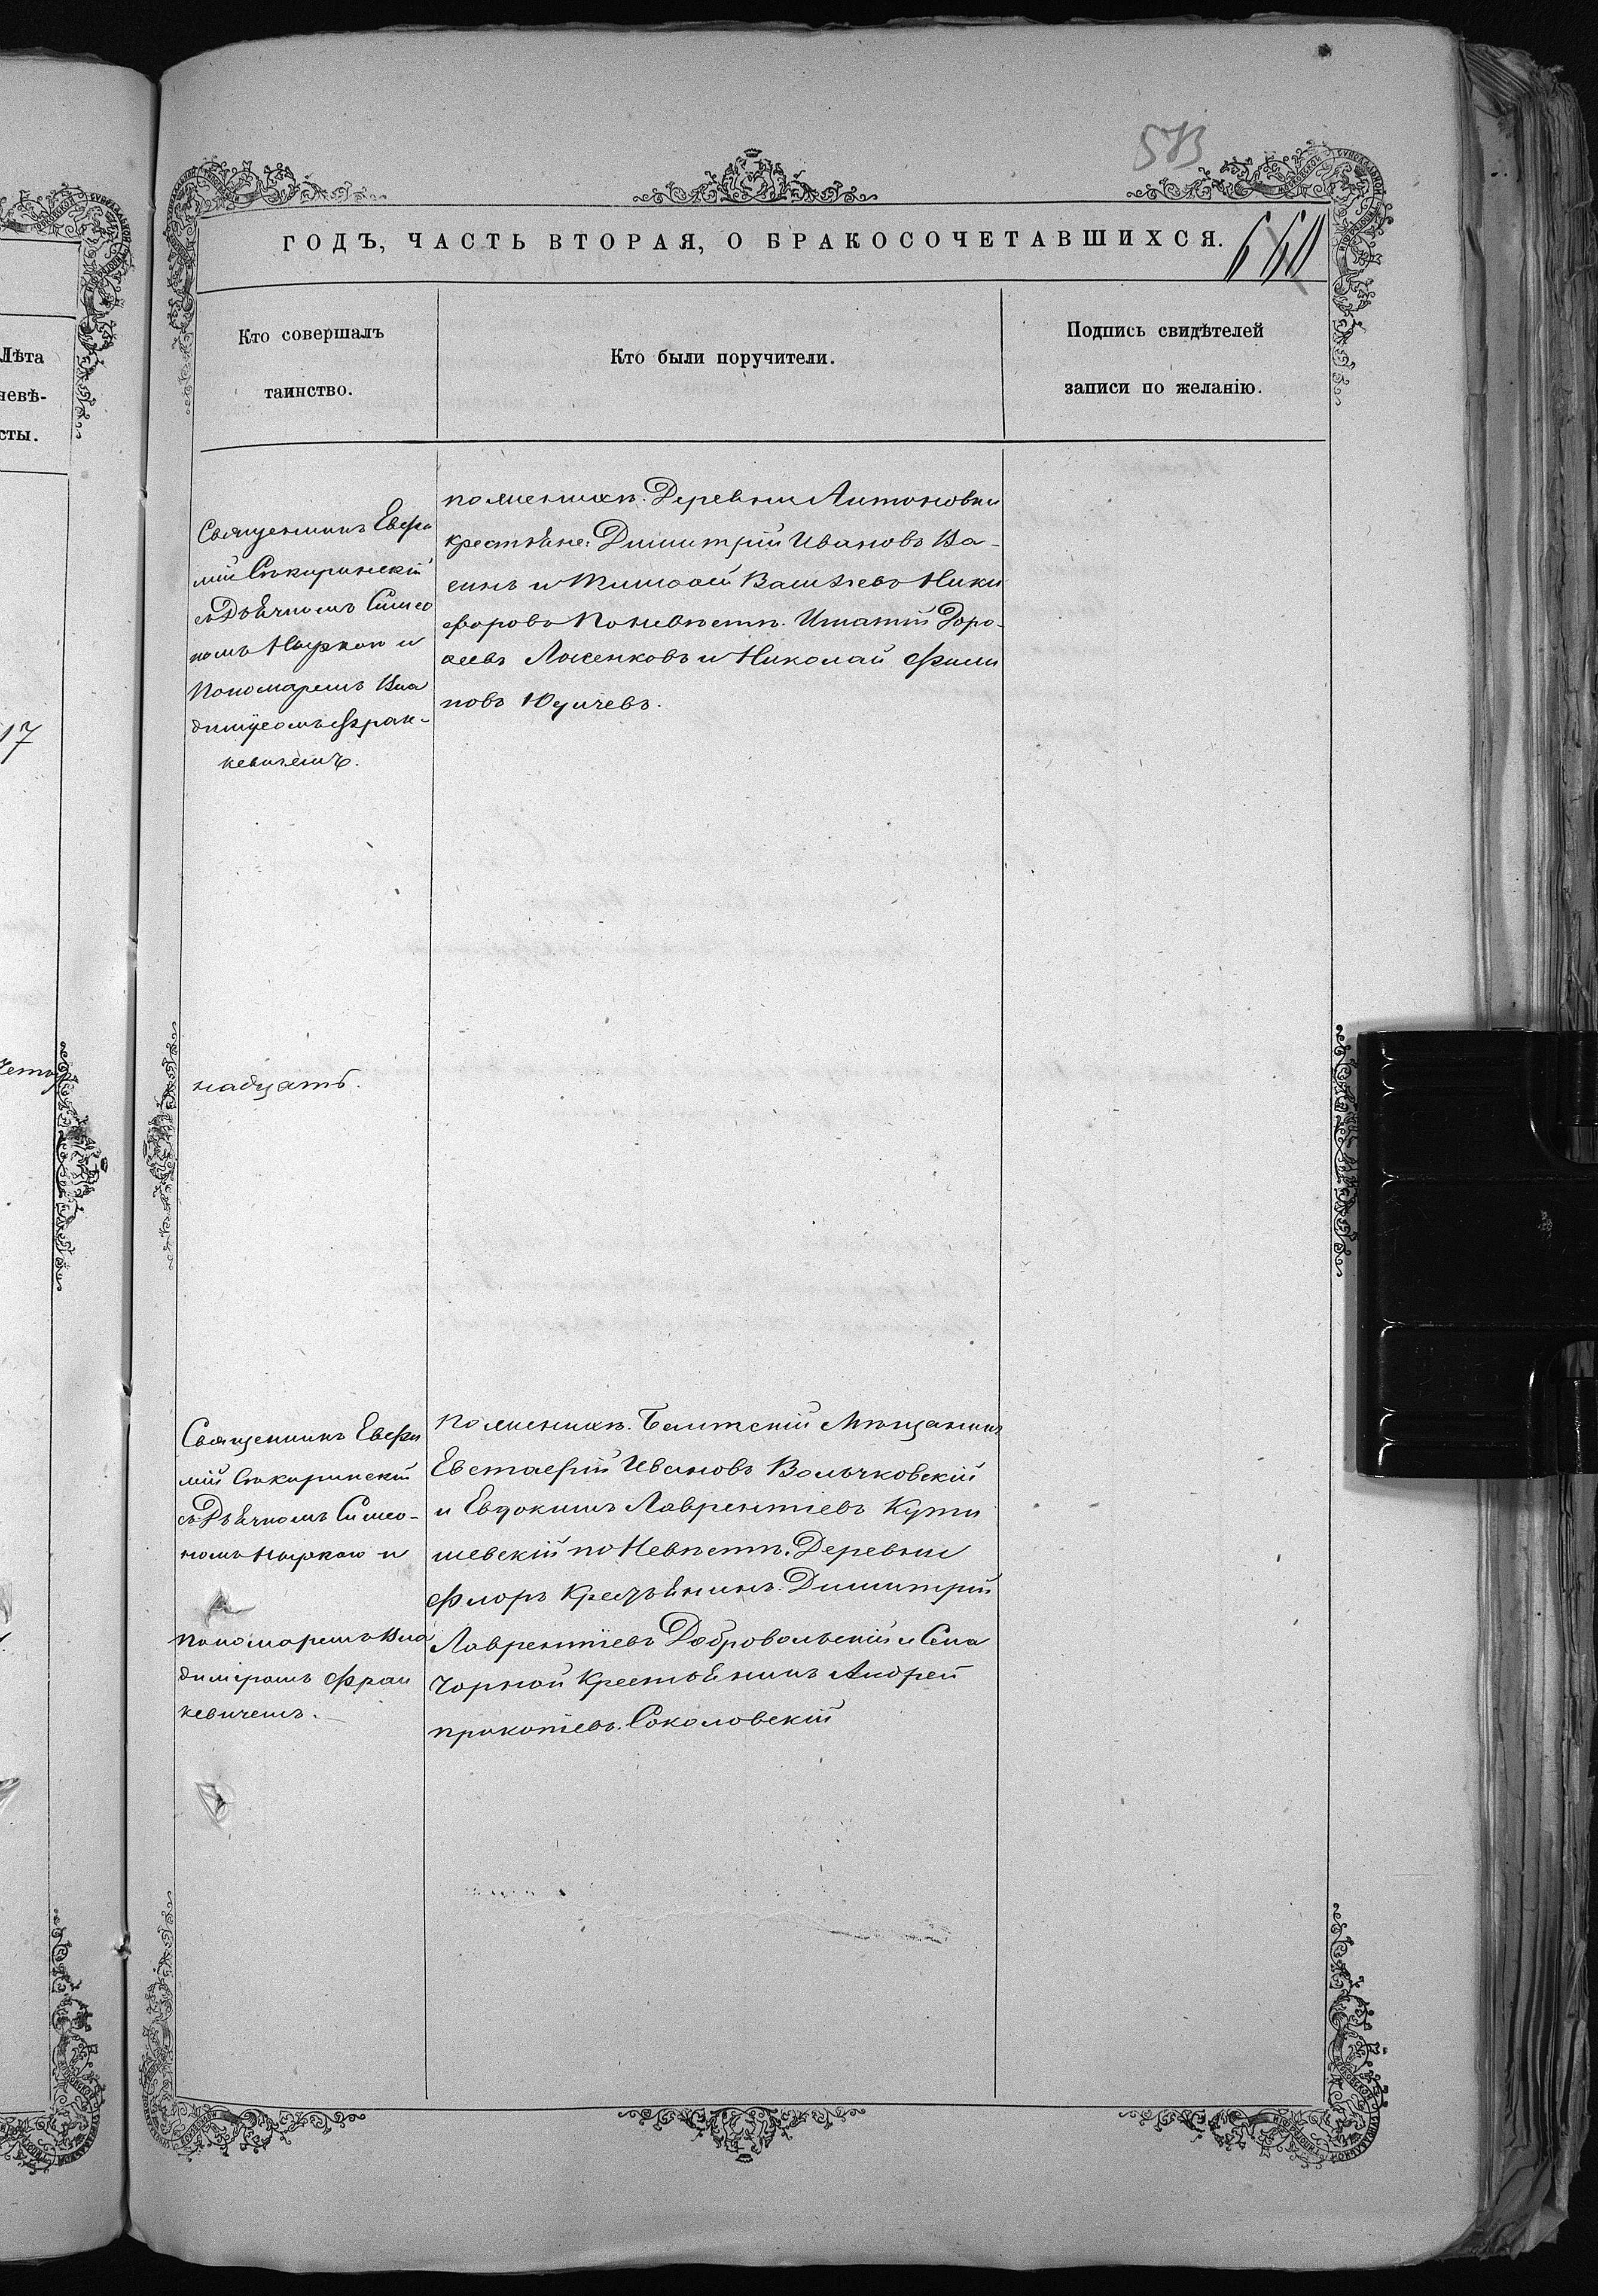 573
ГОДЪ, ЧАСТЬ ВТОРАЯ, О БРАКОСОЧЕТАВШИХСЯ.
Лѣта
невѣ-
сты.
Кто совершалъ
таинство.
Кто были поручители.
Подпись свидѣтелей
записи по желанію.
17
Священникъ Евфи
мій Сѣкиринскій
съ Дьячкомъ Симео
номъ Ныркою и
Пономаремъ Вла
диміромъ Фран-
кевичемъ.
по женихѣ. Деревни Антоновки
крестьяне: Димитрій Ивановъ
и Василіевъ Ники
форовъ По невѣстѣ. Игнатій Доро
Лысенковъ и Николай Фили
повъ
четыр
надцать.
Священникъ Евфи
мій Сѣкиринскій
съ Дьячкомъ Симео-
номъ Ныркою и
пономаремъ Вла
диміромъ Фран
кевичемъ.
По женихѣ. Балтскій Мѣщанинъ
Евстафій Ивановъ Волычковскій
и Евдокимъ Лаврентіевъ
шевскій по Невѣстѣ. Деревни
Флоръ Крестьянинъ. Димитрій
Лаврентіевъ Добровольскій и Села
Чорной Крестьянинъ Андрей
прокопіевъ. Соколовскій